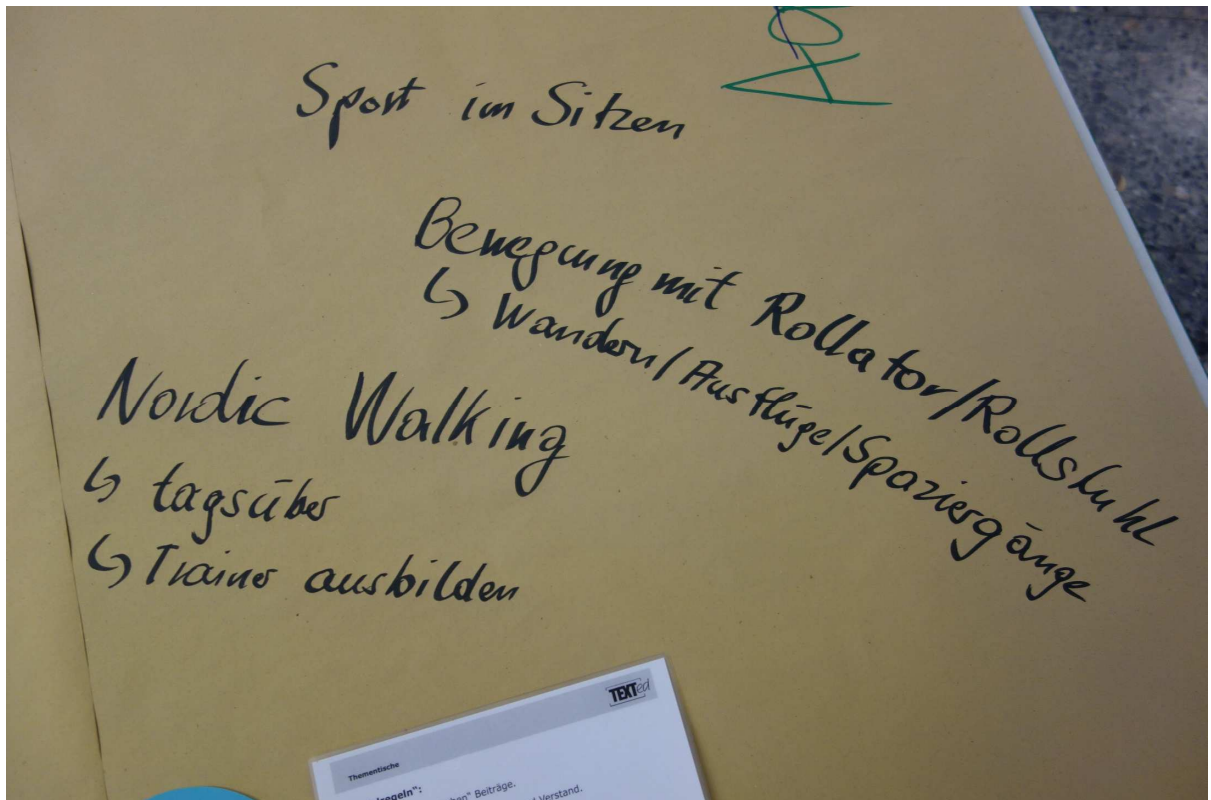 Sport im Sitzen
Bewegung mit Rollator/Rollstuhl
↳ Wandern/Ausflüge/Spaziergänge
Nordic Walking
↳ tagsüber
↳ Trainer ausbilden
TEXTed
Thementische
Beiträge.
Verstand.